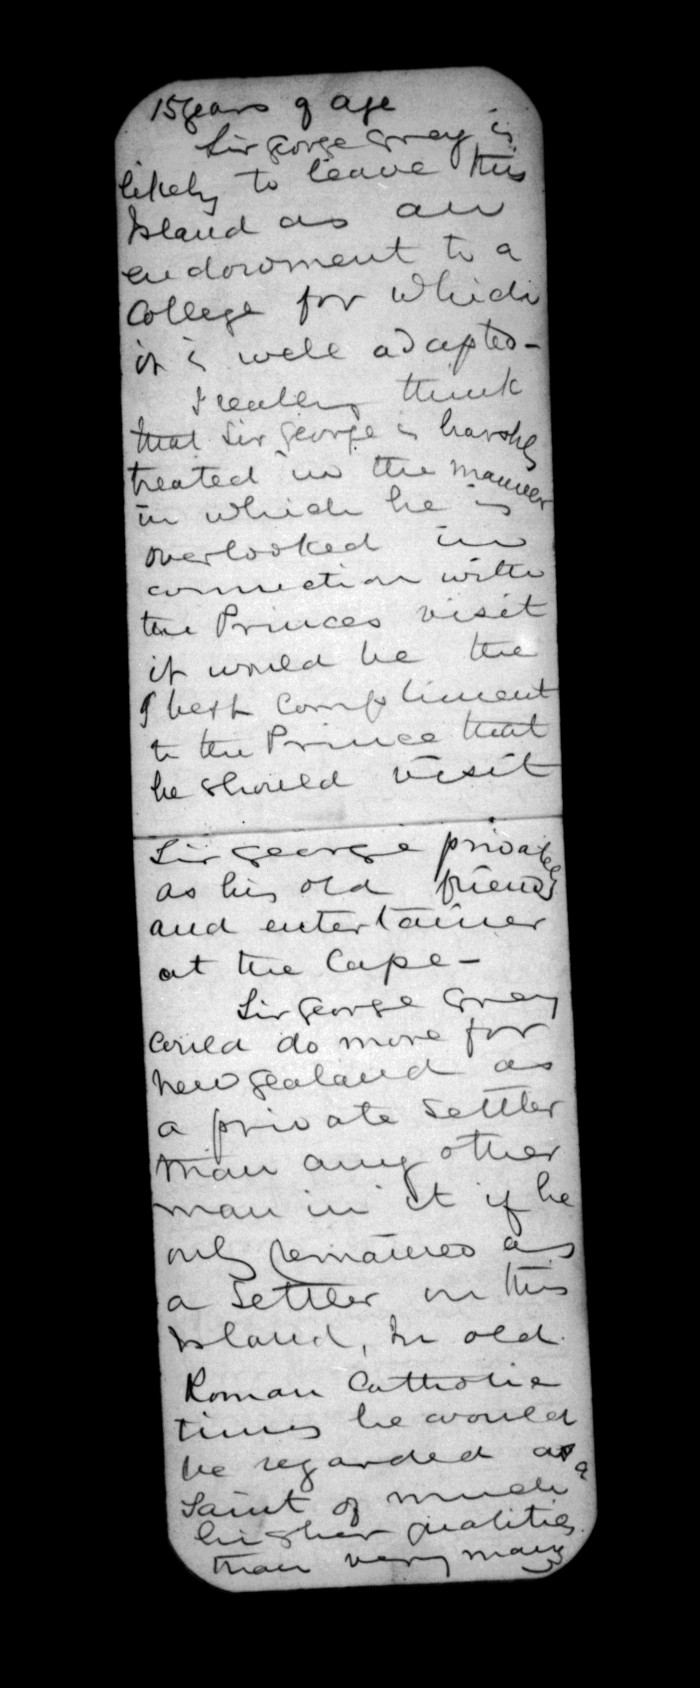 15 years of age
Sir George Grey is
likely to leave this
Island as an
endowment to a
College for which
it is well adapted -
I really think
that Sir George is harshly
treated in the manner
in which he is
overlooked in
connection with
the Princes visit
it would be the
best compliment
to the Prince that
he should visit
Sir George privately
as his old friend
and entertainer
at the Cape -
Sir George Grey
could do more for
New Zealand as
a private Settler
than any other
man in it if he
only remained as
a Settler on this
Island, In old
Roman Catholic
times he would
be regarded as a
Saint of much
higher qualities
than very many